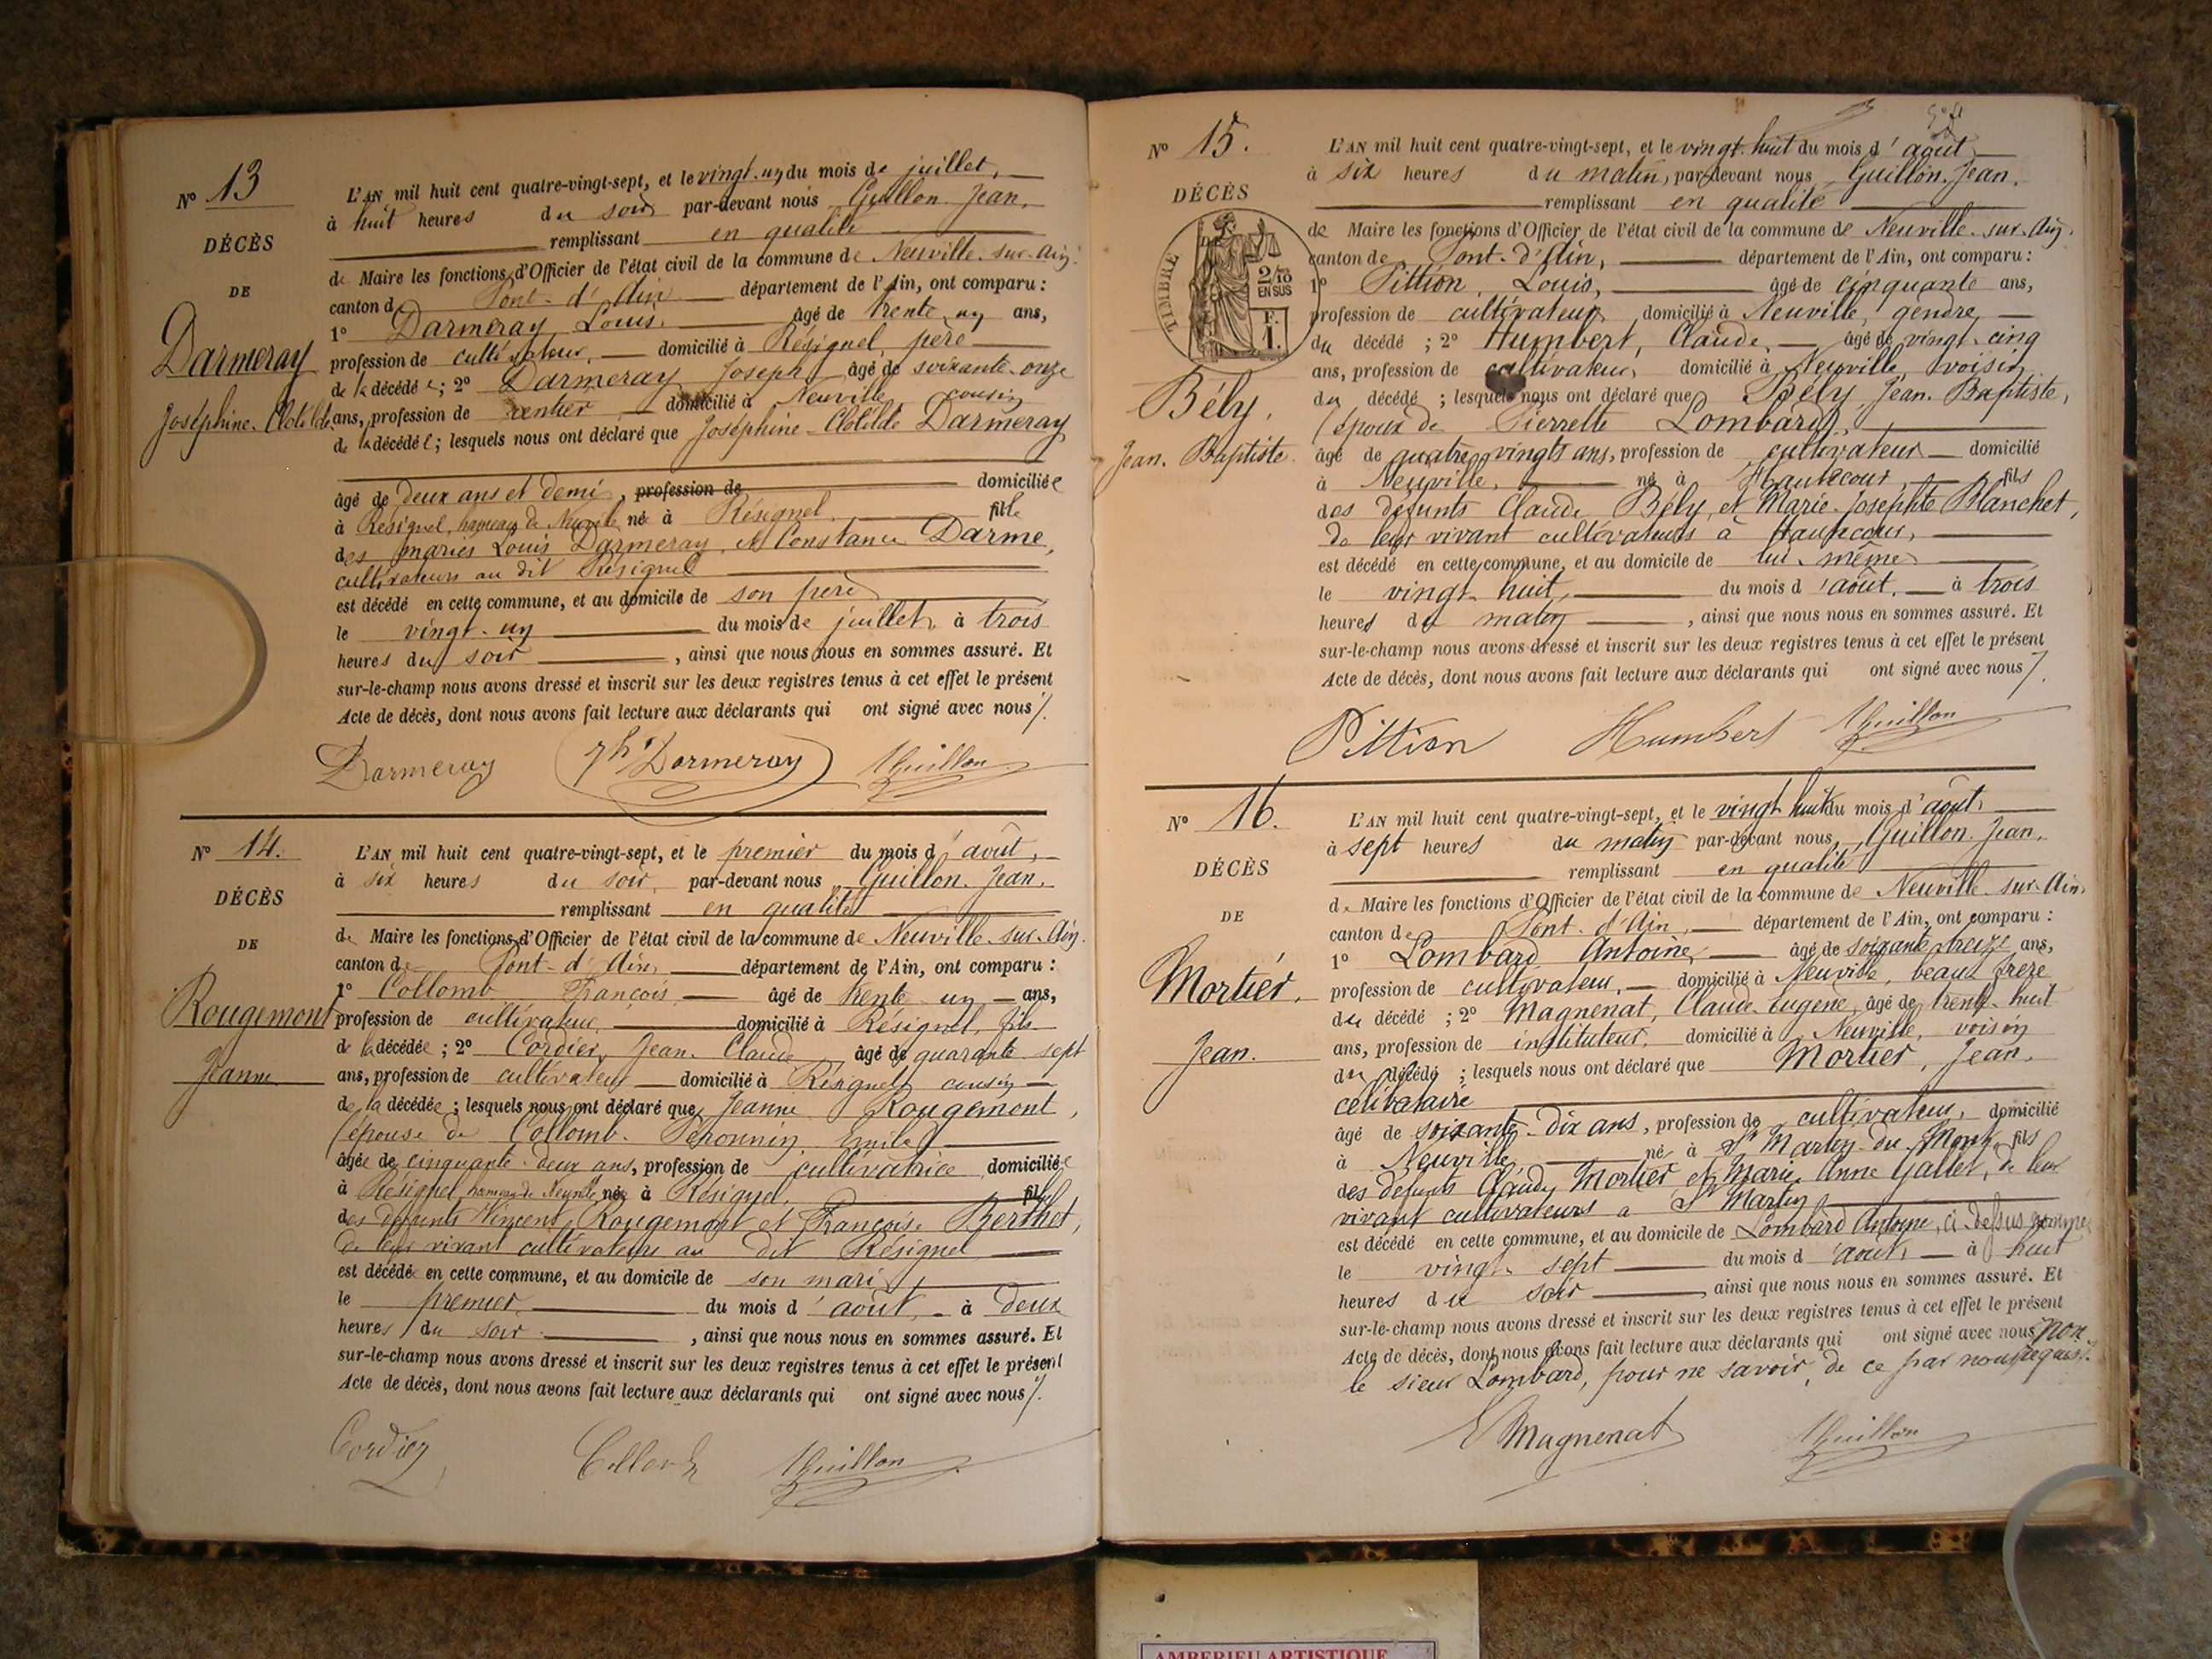 N° 13
DÉCÈS
DE
Darmeray
Joséphine-Clotilde
L'AN mil huit cent quatre-vingt-sept, et le vingt-un du mois de juillet,
à huit heures du soir par-devant nous Guillon Jean,
remplissant en qualité
de Maire les fonctions d'Officier de l'état civil de la commune de Neuville-sur-Ain
canton d Pont-d'Ain département de l'Ain, ont comparu :
1° Darmeray Louis, âgé de trente un ans,
profession de cultivateur, domicilié à Résignel, père
de la décédée ; 2° Darmeray Joseph âgé de soixante-onze
ans, profession de rentier domicilié à Neuville cousin
de la décédée ; lesquels nous ont déclaré que Joséphine-Clotilde Darmeray
âgé de deux ans et demi, profession de domiciliée
à Résignel, hameau de Neuville né à Résignel fille
des mariés Louis Darmeray, et Constance Darme,
cultivateurs au dit Résignel
est décédé en cette commune, et au domicile de son père
le vingt-un du mois de juillet, à trois
heures du soir, ainsi que nous nous en sommes assuré. Et
sur-le-champ nous avons dressé et inscrit sur les deux registres tenus à cet effet le présent
Acte de décès, dont nous avons fait lecture aux déclarants qui ont signé avec nous
Darmeray Jh Darmeray JGuillon
N° 14.
DÉCÈS
DE
Rougemont
Jeanne
L'AN mil huit cent quatre-vingt-sept, et le premier du mois d'août,
à six heures du soir, par-devant nous Guillon Jean,
remplissant en qualité
de Maire les fonctions d'Officier de l'état civil de la commune de Neuville-sur-Ain
canton de Pont-d'Ain, département de l'Ain, ont comparu :
1° Collomb François âgé de trente-un ans,
profession de cultivateur, domicilié à Résignel, fils
de la décédée ; 2° Cordier, Jean-Claude âgé de quarante-sept
ans, profession de cultivateur domicilié à Résignel cousin
de la décédée ; lesquels nous ont déclaré que Jeanne Rougemont,
(épouse de Collomb-Péronnin, Emile)
âgée de cinquante-deux ans, profession de cultivatrice domiciliée
à Résignel, hameau de Neuville née à Résignel, fille
des défunts Vincent Rougemont et Françoise Berthet,
de leur vivant cultivateurs au dit Résignel
est décédé en cette commune, et au domicile de son mari
le premier du mois d'août, à deux
heures du soir, ainsi que nous nous en sommes assuré. Et
sur-le-champ nous avons dressé et inscrit sur les deux registres tenus à cet effet le présent
Acte de décès, dont nous avons fait lecture aux déclarants qui ont signé avec nous
Cordier Collomb JGuillon
N° 15.
DÉCÈS
TIMBRE
2/10
EN SUS
F.
1.
Bély,
Jean-Baptiste
L'AN mil huit cent quatre-vingt-sept, et le vingt-huit du mois d'août
à six heures du matin, par-devant nous Guillon Jean,
remplissant en qualité
de Maire les fonctions d'Officier de l'état civil de la commune de Neuville-sur-Ain,
canton de Pont-d'Ain, département de l'Ain, ont comparu :
1° Pittion, Louis, âgé de cinquante ans,
profession de cultivateur domicilié à Neuville, gendre
du décédé ; 2° Humbert, Claude, âgé de vingt-cinq
ans, profession de cultivateur, domicilié à Neuville, voisin
du décédé ; lesquels nous ont déclaré que Bély, Jean-Baptiste,
(époux de Pierrette Lombard),
âgé de quatre-vingts ans, profession de cultivateur domicilié
à Neuville, né à Hautecour, fils
des défunts Claude Bély, et Marie-Josephte Blanchet,
de leur vivant cultivateurs à Hautecour,
est décédé en cette commune, et au domicile de lui-même
le vingt-huit, du mois d'août, à trois
heures du matin, ainsi que nous nous en sommes assuré. Et
sur-le-champ nous avons dressé et inscrit sur les deux registres tenus à cet effet le présent
Acte de décès, dont nous avons fait lecture aux déclarants qui ont signé avec nous
Pittion Humbert JGuillon
N° 16.
DÉCÈS
DE
Mortier,
Jean.
L'AN mil huit cent quatre-vingt-sept, et le vingt-huit du mois d'août,
à sept heures du matin par-devant nous, Guillon Jean,
remplissant en qualité
de Maire les fonctions d'Officier de l'état civil de la commune de Neuville-sur-Ain,
canton de Pont-d'Ain, département de l'Ain, ont comparu :
1° Lombard Antoine, âgé de soixante treize ans,
profession de cultivateur, domicilié à Neuville, beau-frère
du décédé ; 2° Magnenat, Claude-Eugène, âgé de trente-huit
ans, profession de instituteur, domicilié à Neuville, voisin
du décédé ; lesquels nous ont déclaré que Mortier, Jean,
célibataire
âgé de soixante-dix ans, profession de cultivateur, domicilié
à Neuville, né à St Martin-du-Mont, fils
des défunts Claude Mortier et Marie-Anne Gallet, de leur
vivant cultivateurs à St Martin
est décédé en cette commune, et au domicile de Lombard Antoine, ci-dessus nommé
le vingt-sept du mois d'août, à huit
heures du soir, ainsi que nous nous en sommes assuré. Et
sur-le-champ nous avons dressé et inscrit sur les deux registres tenus à cet effet le présent
Acte de décès, dont nous avons fait lecture aux déclarants qui ont signé avec nous non
le sieur Lombard, pour ne savoir, de ce par nous requis.
E Magnenat JGuillon
AMBERIEU ARTISTIQUE